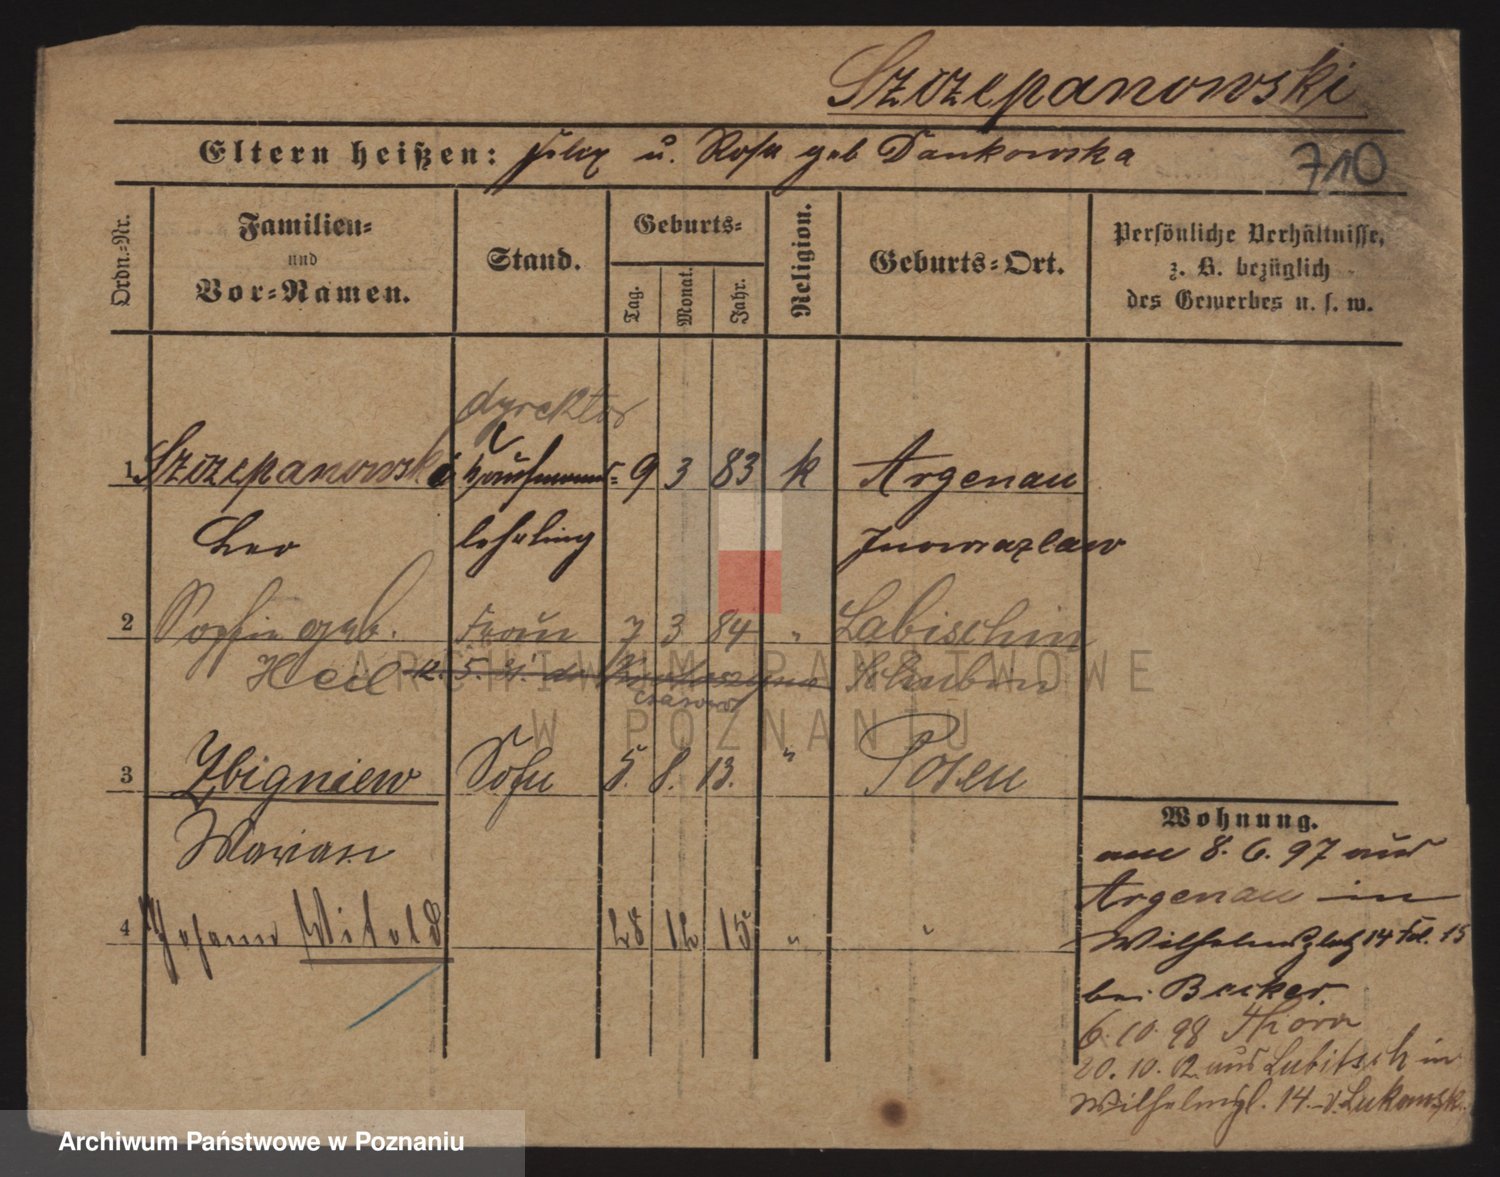 Szczepanowski
Eltern heißen: Felix u. Rosa geb Dankowska
710
Ordn.-Nr.
Familien-
und
Vor-Namen.
Stand.
Geburts-
Tag. Monat. Jahr.
Religion.
Geburts-Ort.
Persönliche Verhältnisse,
z. B. bezüglich
des Gewerbes u. s. w.
dyrektor
1 Szczepanowski Kaufmanns- 9 3 83 k Argenau
Leo lehrling Inowrazlaw
2 Sophie geb. Frau 7 3 84 " Labischin
Heil Schubin
czasowo
3 Zbigniew Sohn 5. 8. 13. " Posen
Marian
4 Johann Witold 28 12 15 " "
Wohnung.
am 8. 6. 97 aus
Argenau in
Wilhelmsplatz 14 Fol. 15
bei Becker.
6. 10. 98 Thorn
20. 10. 02 aus Lubitsch in
Wilhelmpl. 14 - v. Lukowsk.
ARCHIWUM PAŃSTWOWE
W POZNANIU
Archiwum Państwowe w Poznaniu